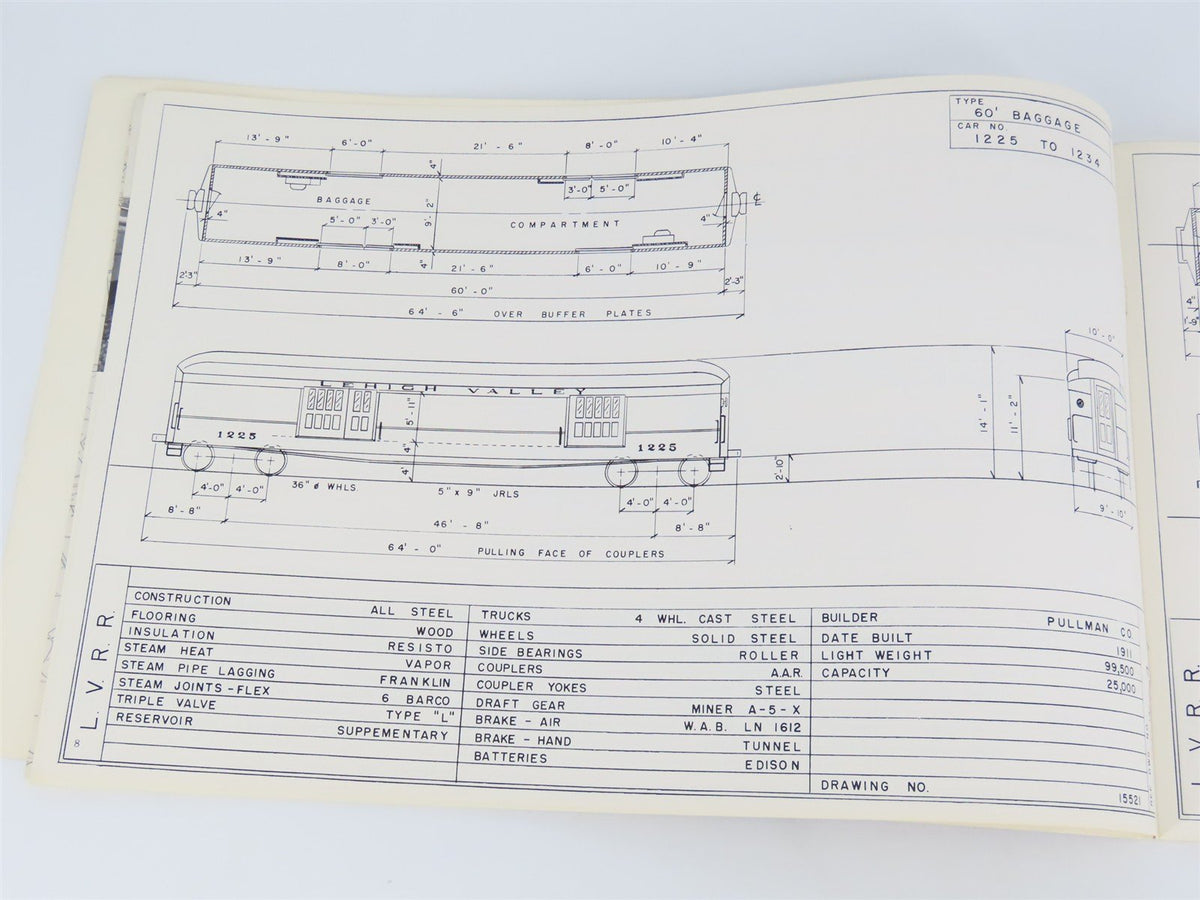 TYPE
60' BAGGAGE
CAR NO.
1225 TO 1234
13' - 9" 6' - 0" 21' - 6" 8' - 0" 10' - 4"
4"
3'-0" 5'-0"
BAGGAGE
9' - 2"
4" 5'-0" 3'-0" COMPARTMENT 4"
4"
13' - 9" 8' - 0" 21' - 6" 6' - 0" 10' - 9"
2'3" 60' - 0" 2'-3"
64' - 6" OVER BUFFER PLATES
10' - 0"
LEHIGH VALLEY
5' - 11"
14' - 1"
11' - 2"
1225 4" 1225
4'
2'-10"
4'-0" 4'-0" 36" ø WHLS. 5" x 9" JRLS 4'-0" 4'-0"
9' - 10"
8' - 8" 46' - 8" 8' - 8"
64' - 0" PULLING FACE OF COUPLERS
L. V. R. R.
CONSTRUCTION ALL STEEL
FLOORING WOOD
INSULATION RESISTO
STEAM HEAT VAPOR
STEAM PIPE LAGGING FRANKLIN
STEAM JOINTS - FLEX 6 BARCO
TRIPLE VALVE TYPE "L"
RESERVOIR SUPPEMENTARY
TRUCKS 4 WHL. CAST STEEL
WHEELS SOLID STEEL
SIDE BEARINGS ROLLER
COUPLERS A.A.R.
COUPLER YOKES STEEL
DRAFT GEAR MINER A-5-X
BRAKE - AIR W.A.B. LN 1612
BRAKE - HAND TUNNEL
BATTERIES EDISON
BUILDER PULLMAN CO
DATE BUILT 1911
LIGHT WEIGHT 99,500
CAPACITY 25,000
DRAWING NO. 15521
8
4"
1'-9"
L. V. R. R.